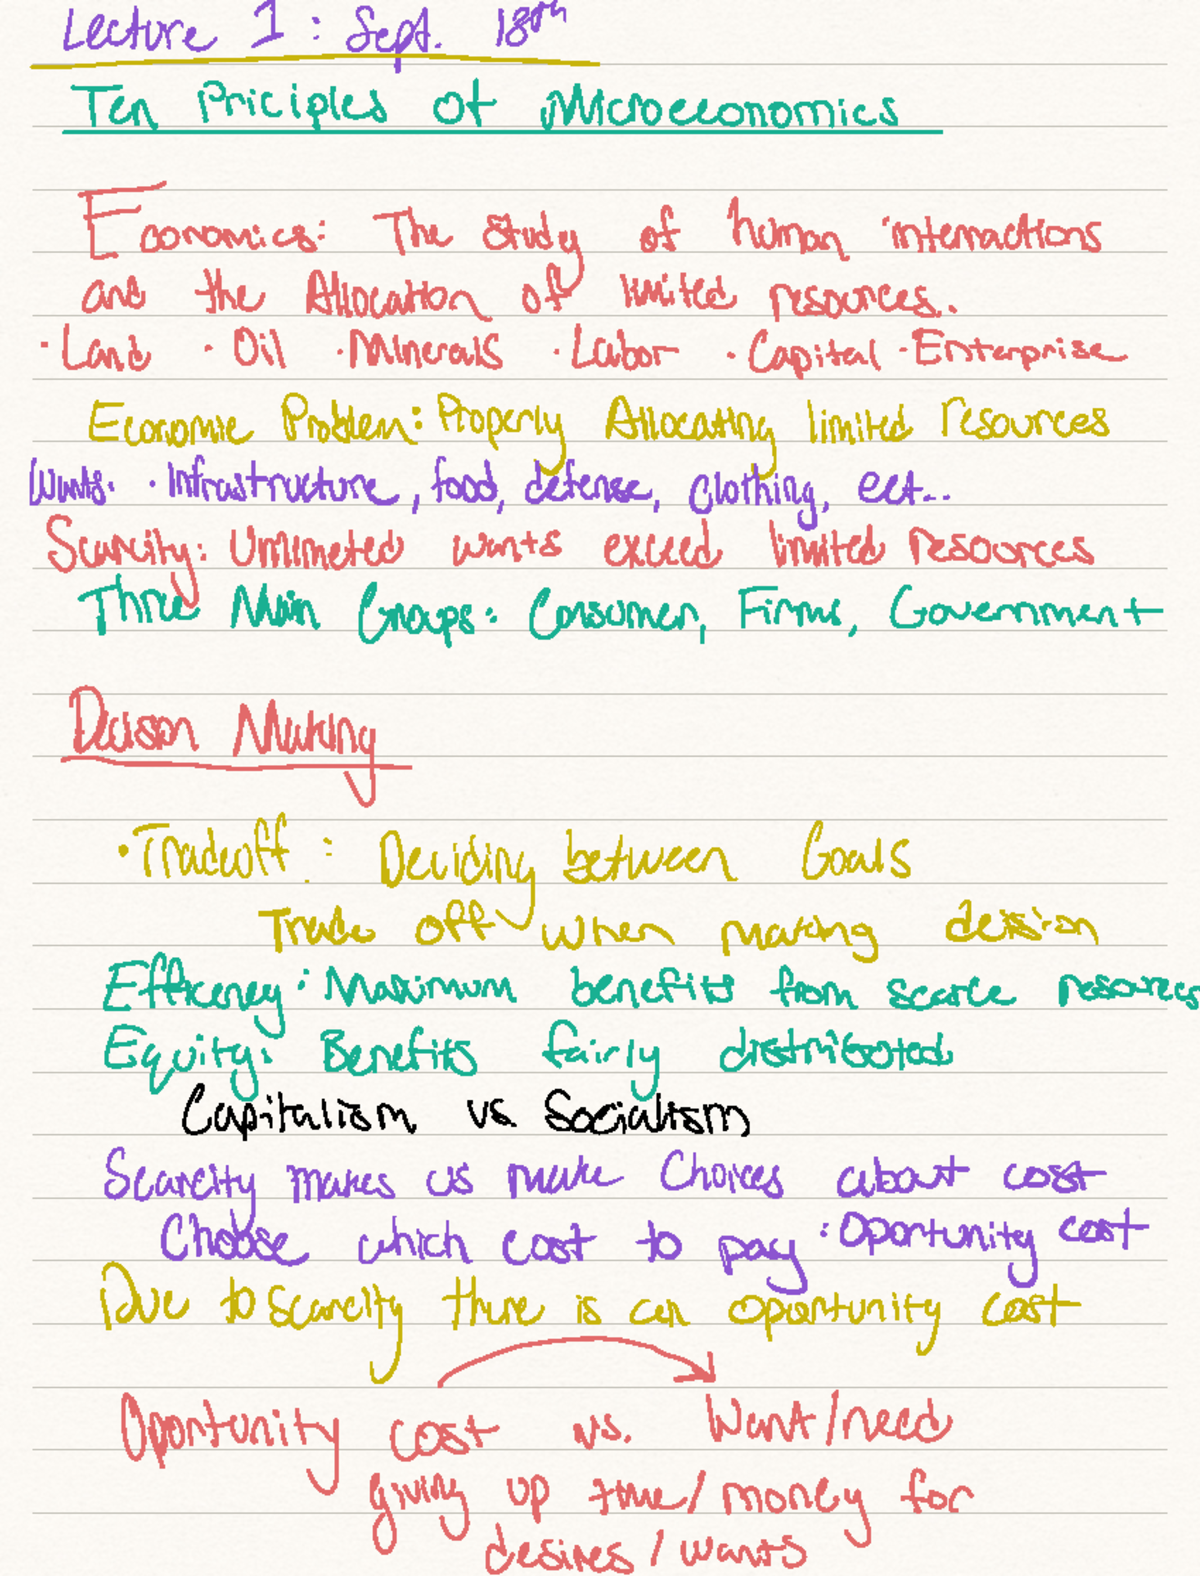 Lecture 1 : Sept. 18th
Ten Priciples of Microeconomics
Economics: The study of human interractions
and the Allocation of limited resources.
· Land · Oil · Minerals · Labor · Capital · Enterprise
Economic Problem: Properly Allocating limited resources
Wants: · Infrastructure, food, defense, clothing, ect..
Scarcity: Unlimeted wants exceed limited resources
Three Main Groups: Consumer, Firms, Government
Decison Making
· Tradeoff : Deciding between Goals
Trade off when making decision
Efficency: Maximum benefits from scarce resources
Equity: Benefits fairly distributed
Capitalism vs Socialism
Scarcity makes us make Choices about cost
Choose which cost to pay : Oportunity cost
Due to scarcity there is an oportunity cost
Oportunity cost vs. Want/need
giving up time/money for
desires/wants